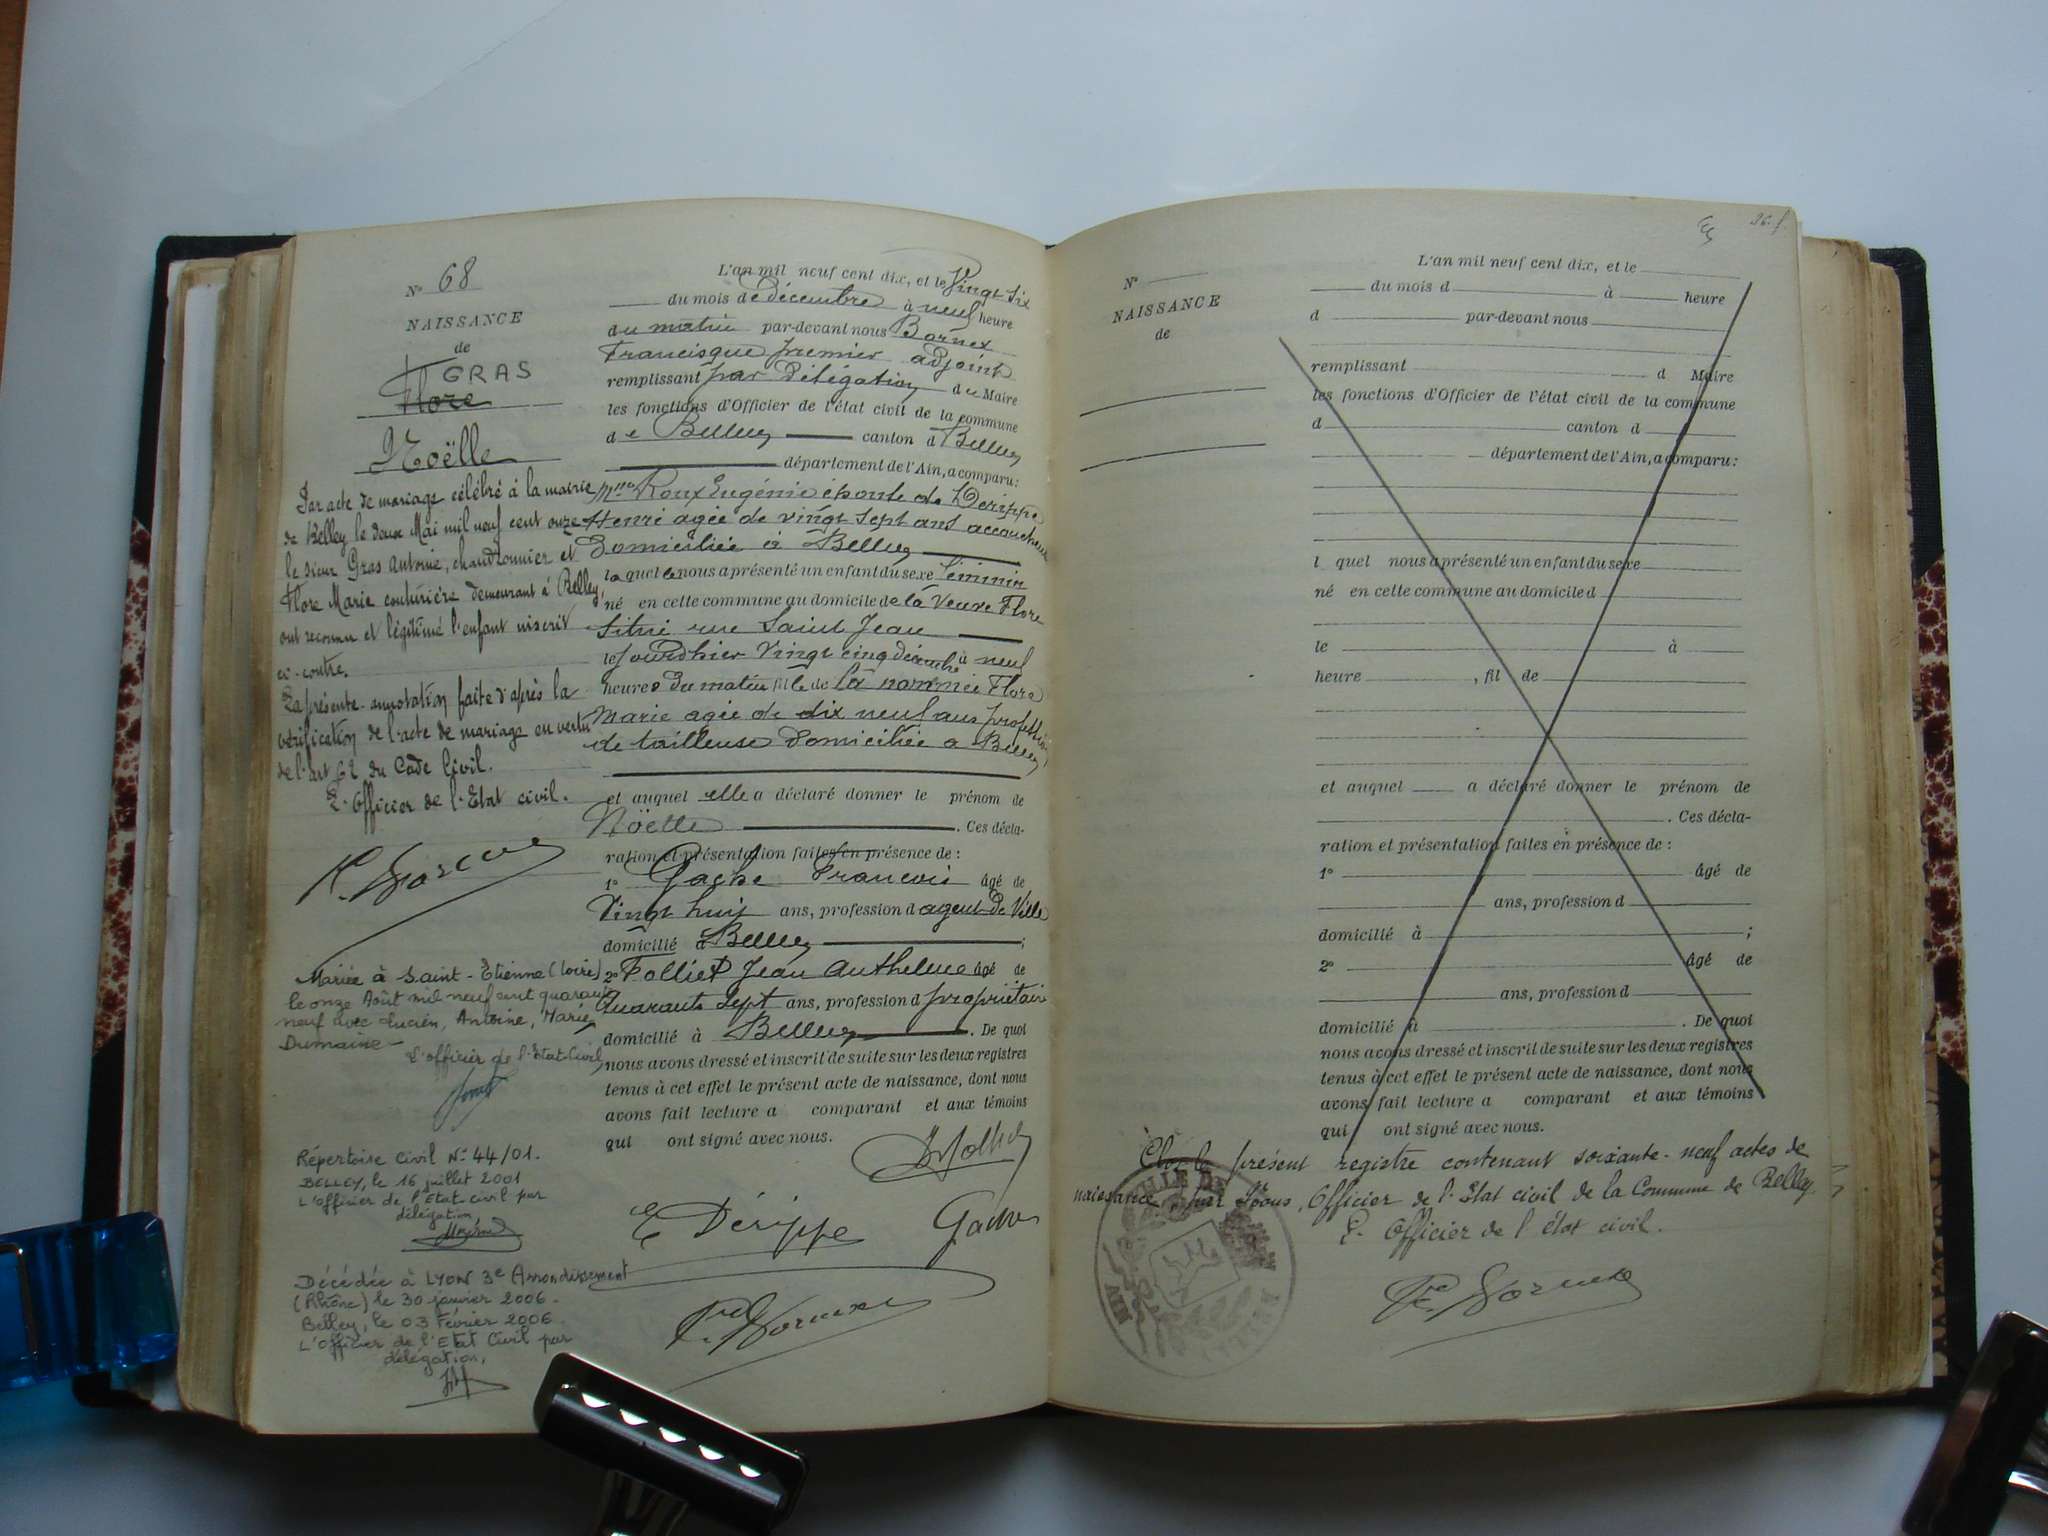 N° 68
NAISSANCE
de
GRAS
Flore
Noëlle
Par acte de mariage célébré à la mairie
de Belley le deux Mai mil neuf cent onze
le sieur Gras Antoine, chaudronnier et
Flore Marie couturière demeurant à Belley,
ont reconnu et légitimé l'enfant inscrit
ci-contre.
La présente annotation faite d'après la
vérification de l'acte de mariage en vertu
de l'art 62 du Code Civil.
L'Officier de l'Etat civil.
Mariée à Saint-Etienne (Loire)
le onze Août mil neuf cent quarante
neuf avec Lucien, Antoine, Marie,
Dumaine
L'officier de l'Etat-Civil,
Répertoire Civil N° 44/01.
BELLEY, le 16 juillet 2001
L'Officier de l'Etat civil par
délégation,
Décédée à LYON 3e Arrondissement
(Rhône) le 30 janvier 2006.
Belley, le 03 Février 2006.
L'Officier de l'Etat Civil par
délégation,
L'an mil neuf cent dix, et le Vingt six
du mois de décembre à neuf heure
du matin par-devant nous Bornex
Francisque premier adjoint
remplissant par délégation du Maire
les fonctions d'Officier de l'état civil de la commune
de Belley canton d Belley
département de l'Ain, a comparu:
Mme Roux Eugénie épouse de Derippe
Henri agée de vingt sept ans accoucheuse
domiciliée à Belley
laquelle nous a présenté un enfant du sexe féminin
né en cette commune au domicile de la Veuve Flore
situé rue Saint Jean
le jourdhier Vingt cinq décembre à neuf
heures du matin fille de la nommée Flore
Marie agée de dix neuf ans profession
de tailleuse domiciliée a Belley
et auquel elle a déclaré donner le prénom de
Nöelle . Ces décla-
ration et présentation faites en présence de :
1° Gache Francois âgé de
Vingt huit ans, profession d agent de Ville
domicilié à Belley ;
2° Folliet Jean Anthelme âgé de
Quarante sept ans, profession d propriétaire
domicilié à Belley . De quoi
nous avons dressé et inscrit de suite sur les deux registres
tenus à cet effet le présent acte de naissance, dont nous
avons fait lecture a comparant et aux témoins
qui ont signé avec nous.
E Dérippe Gache
N°
NAISSANCE
de
26. f.
L'an mil neuf cent dix, et le
du mois d à heure
d par-devant nous
remplissant d Maire
les fonctions d'Officier de l'état civil de la commune
d canton d
département de l'Ain, a comparu:
l quel nous a présenté un enfant du sexe
né en cette commune au domicile d
le à
heure , fil de
et auquel a déclaré donner le prénom de
. Ces décla-
ration et présentation faites en présence de :
1° âgé de
ans, profession d
domicilié à ;
2° âgé de
ans, profession d
domicilié à . De quoi
nous avons dressé et inscrit de suite sur les deux registres
tenus à cet effet le présent acte de naissance, dont nous
avons fait lecture a comparant et aux témoins
qui ont signé avec nous.
Clos le présent registre contenant soixante-neuf actes de
naissance, par Nous, Officier de l'Etat civil de la Commune de Belley
L'Officier de l'état civil.
VILLE DE